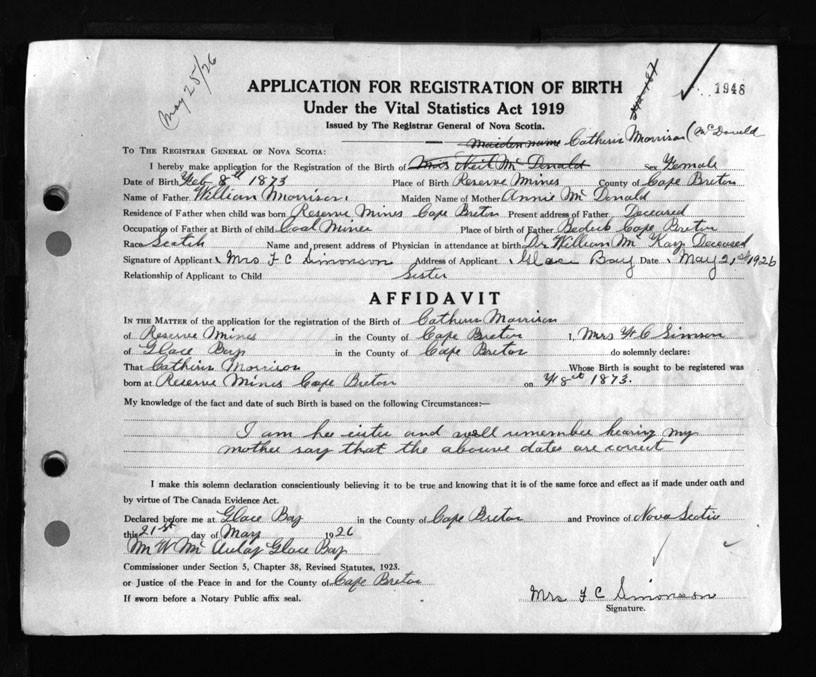 May 25/26
APPLICATION FOR REGISTRATION OF BIRTH
1948
Under the Vital Statistics Act 1919
Issued by The Registrar General of Nova Scotia.
maiden name Catherin Morrison (McDonald
TO THE REGISTRAR GENERAL OF NOVA SCOTIA:
I hereby make application for the Registration of the Birth of Mrs Neil McDonald Sex Female
Date of Birth Feb 8th 1873 Place of Birth Reserve Mines County of Cape Breton
Name of Father William Morrison, Maiden Name of Mother Annie McDonald
Residence of Father when child was born Reserve Mines Cape Breton Present address of Father Deceased
Occupation of Father at Birth of child Coal Miner Place of birth of Father Bedeck Cape Breton
Race Scotch Name and present address of Physician in attendance at birth Dr William McKay Deceased
Signature of Applicant Mrs F C Simonson Address of Applicant Glace Bay Date May 21st 1926
Relationship of Applicant to Child Sister
AFFIDAVIT
IN THE MATTER of the application for the registration of the Birth of Catherin Morrison
of Reserve Mines in the County of Cape Breton I, Mrs F C Simson
of Glace Bay in the County of Cape Breton do solemnly declare:
That Catherin Morrison Whose Birth is sought to be registered was
born at Reserve Mines Cape Breton on 8th 1873.
My knowledge of the fact and date of such Birth is based on the following Circumstances:—
I am her sister and well remember hearing my
mother say that the abouve dates are correct
I make this solemn declaration conscientiously believing it to be true and knowing that it is of the same force and effect as if made under oath and
by virtue of The Canada Evidence Act.
Declared before me at Glace Bay in the County of Cape Breton and Province of Nova Scotia
this 21st day of May 1926
Mr W McAulay Glace Bay
Commissioner under Section 5, Chapter 38, Revised Statutes, 1923.
or Justice of the Peace in and for the County of Cape Breton
If sworn before a Notary Public affix seal.
Mrs F C Simonson
Signature.